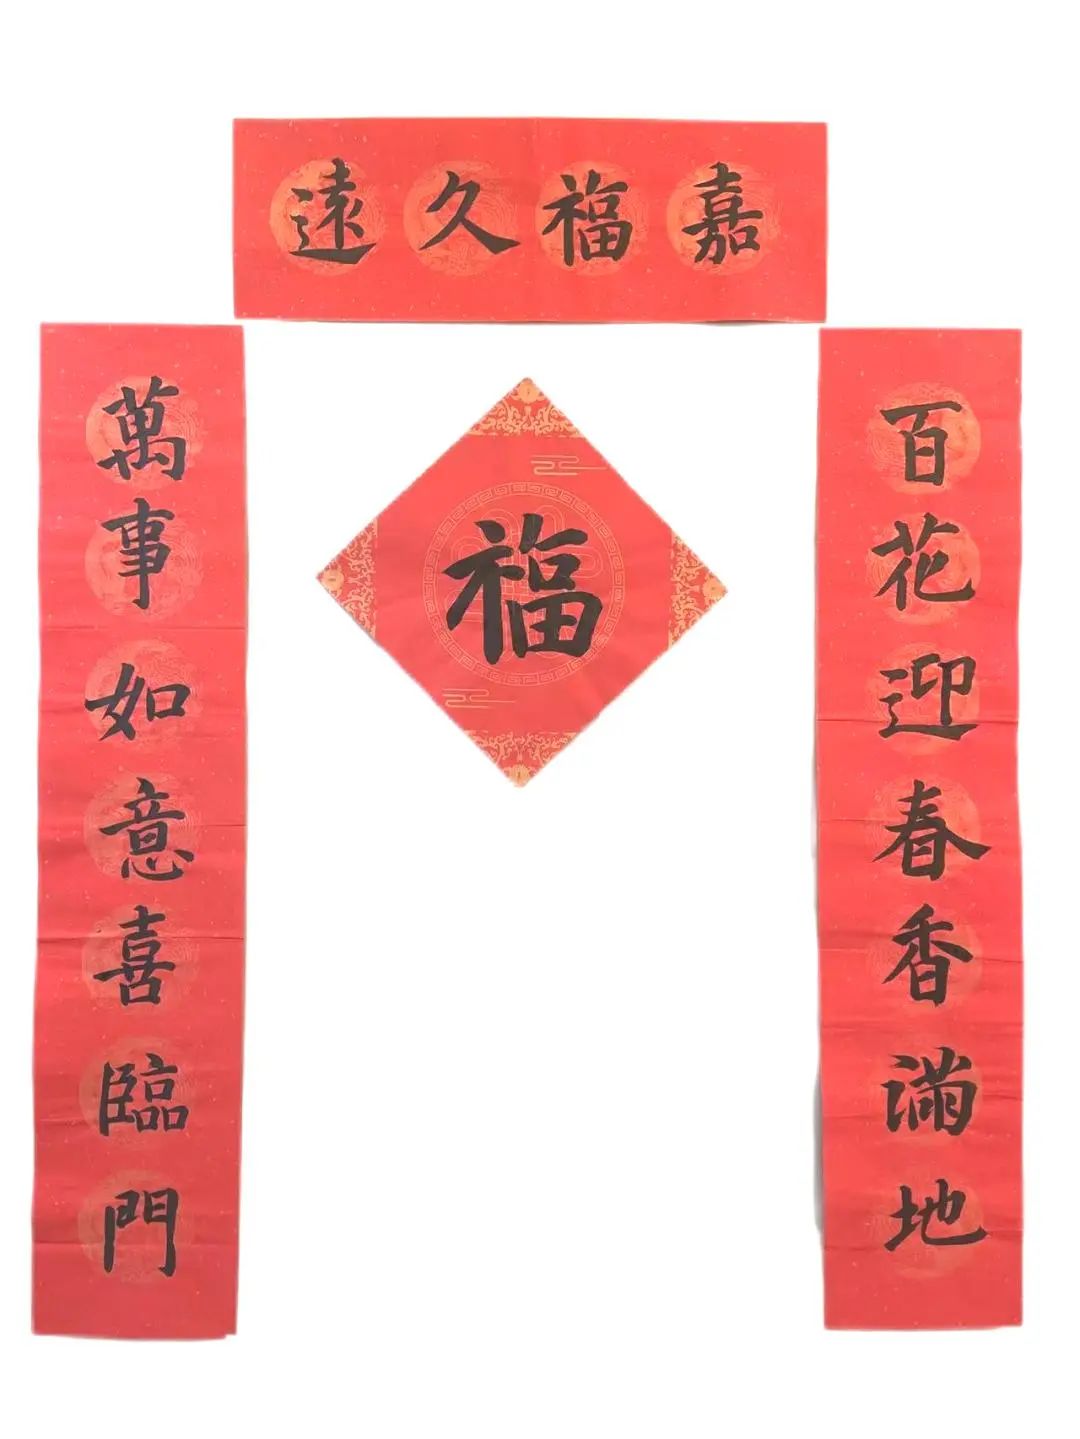 嘉福久遠
百花迎春香滿地
萬事如意喜臨門
福